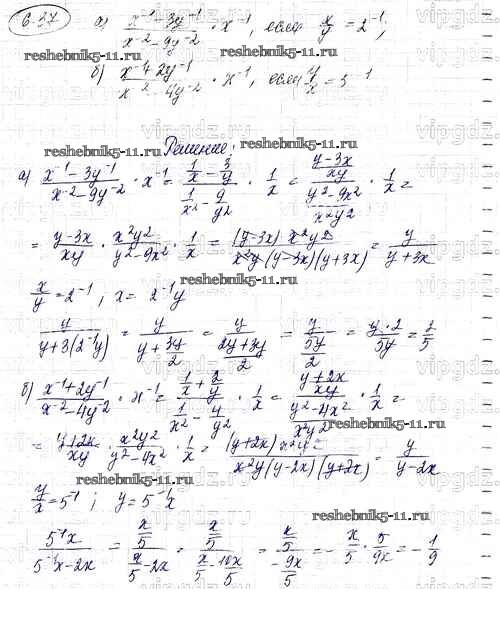 6.37 а) (x⁻¹ - 3y⁻¹)/(x⁻² - 9y⁻²) · x⁻¹, если x/y = 2⁻¹;
reshebnik5-11.ru
б) (x⁻¹ + 2y⁻¹)/(x⁻² - 4y⁻²) · x⁻¹, если y/x = 5⁻¹
vipgdz.ru
reshebnik5-11.ru Решение: reshebnik5-11.ru
а) (x⁻¹ - 3y⁻¹)/(x⁻² - 9y⁻²) · x⁻¹ = (1/x - 3/y)/(1/x² - 9/y²) · 1/x = ((y-3x)/xy)/((y²-9x²)/x²y²) · 1/x =
= (y-3x)/xy · x²y²/(y²-9x²) · 1/x = (y-3x)x²y²/(x²y(y-3x)(y+3x)) = y/(y+3x)
reshebnik5-11.ru
x/y = 2⁻¹; x = 2⁻¹y
y/(y+3(2⁻¹y)) = y/(y+3y/2) = y/((2y+3y)/2) = y/(5y/2) = y·2/5y = 2/5
reshebnik5-11.ru
б) (x⁻¹ + 2y⁻¹)/(x⁻² - 4y⁻²) · x⁻¹ = (1/x + 2/y)/(1/x² - 4/y²) · 1/x = ((y+2x)/xy)/((y²-4x²)/x²y²) · 1/x =
reshebnik5-11.ru
= (y+2x)/xy · x²y²/(y²-4x²) · 1/x = (y+2x)x²y²/(x²y(y-2x)(y+2x)) = y/(y-2x)
reshebnik5-11.ru
y/x = 5⁻¹; y = 5⁻¹x
reshebnik5-11.ru
5⁻¹x/(5⁻¹x-2x) = (x/5)/(x/5-2x) = (x/5)/((x-10x)/5) = (x/5)/(-9x/5) = - x/5 · 5/9x = - 1/9